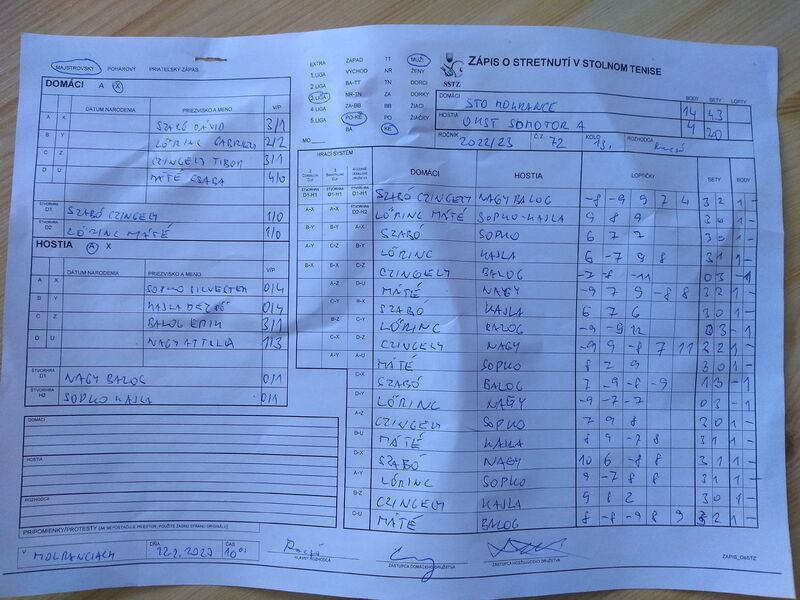 MAJSTROVSKÝ POHÁROVÝ PRIATEĽSKÝ ZÁPAS
DOMÁCI A X
DÁTUM NARODENIA PRIEZVISKO A MENO V/P
A X SZABÓ DÁVID 3/1
B Y LÖRINC GABRIEL 2/2
C Z CZINGELY TIBOR 3/1
D U MÁTÉ CSABA 4/0
ŠTVORHRA D1 SZABÓ CZINGELY 1/0
ŠTVORHRA D2 LÖRINC MÁTÉ 1/0
HOSTIA A X
DÁTUM NARODENIA PRIEZVISKO A MENO V/P
A X SOPKO SILVESTER 0/4
B Y KAJLA DEZSÖ 0/4
C Z BALOG ERIK 3/1
D U NAGY ATTILA 1/3
ŠTVORHRA D1 NAGY BALOG 0/1
ŠTVORHRA H2 SOPKO KAJLA 0/1
DOMÁCI
HOSTIA
ROZHODCA
PRIPOMIENKY/PROTESTY (AK NEPOSTAČUJE PRIESTOR, POUŽITE ZADNÚ STRANU ORIGINÁLU)
V MOKRANCIACH DŇA 12.2.2023 ČAS 10 00
HLAVNÝ ROZHODCA
ZÁSTUPCA DOMÁCEHO DRUŽSTVA
ZÁSTUPCA HOSŤUJÚCEHO DRUŽSTVA
ZAPIS_OSSTZ
EXTRA ZÁPAD TT MUŽI
1.LIGA VÝCHOD NR ŽENY
2.LIGA BA-TT TN DORCI
3.LIGA NR-TN ZA DORKY
4.LIGA ZA-BB BB ŽIACI
5.LIGA PO-KE PO ŽIAČKY
BA KE
MO
SSTZ
ZÁPIS O STRETNUTÍ V STOLNOM TENISE
BODY SETY LOPTY
DOMÁCI STO MOKRANCE 14 43
HOSTIA OKST SOMOTOR A 4 20
ROČNÍK 2022/23 Č.Z. 72 KOLO 13. ROZHODCA
HRACÍ SYSTÉM
DOMÁCI HOSTIA LOPTIČKY SETY BODY
ŠTVORHRA D1-H1 SZABÓ CZINGELY NAGY BALOG -8 -9 9 7 4 3 2 1 -
A-X D2-H2 LÖRINC MÁTÉ SOPKO-KAJLA 9 8 9 3 0 1 -
B-Y A-X SZABÓ SOPKO 6 7 7 3 0 1 -
B-Y LÖRINC KAJLA 6 -7 9 8 3 1 1 -
C-Z CZINGELY BALOG -7 -8 -11 0 3 - 1
D-U MÁTÉ NAGY -9 7 9 -8 8 3 2 1 -
SZABÓ KAJLA 6 7 6 3 0 1 -
LÖRINC BALOG
CZINGELY NAGY -9 9 -8 7 11
A-U MÁTÉ SOPKO 8 7 9 3 0 1 -
C-X SZABÓ BALOG 7 -9 -8 -9 1 3 - 1
LÖRINC NAGY -9 -7 -7 0 3 - 1
A-Z CZINGELY SOPKO 7 9 8 3 0 1 -
B-U MÁTÉ KAJLA 8 9 -7 8 3 1 1 -
D-X SZABÓ NAGY 10 6 -8 8 3 1 1 -
A-Y LÖRINC SOPKO 9 -7 8 8 3 1 1 -
B-Z CZINGELY KAJLA 9 8 2 3 0 1 -
C-U MÁTÉ BALOG 8 -8 -9 8 9 3 2 1 -